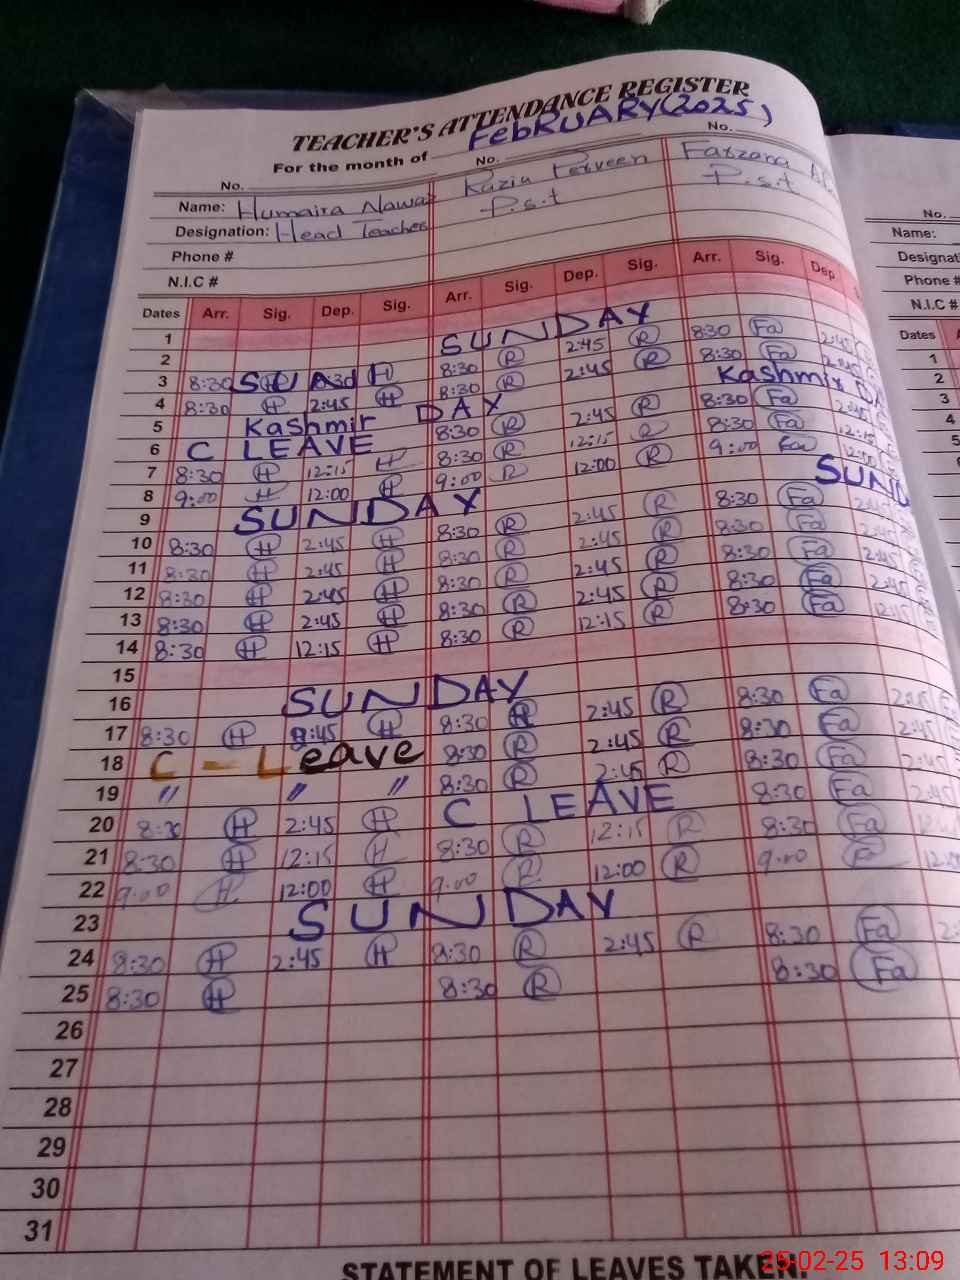 TEACHER'S ATTENDANCE REGISTER
For the month of FebRUARY (2025)
No. No. No.
Name: Humaira Nawaz Razia Perveen Farzana
Designation: Head Teacher P.s.t P.s.t
Phone #
N.I.C #
Dates Arr. Sig. Dep. Sig. Arr. Sig. Dep. Sig. Arr. Sig. Dep.
1
2 SUNDAY
3 8:30 H 8:30 R 2:45 R 8:30 Fa 2:45
4 8:30 H 2:45 H 8:30 R 2:45 R 8:30 Fa 2:45
5 Kashmir DAY Kashmir DA
6 C LEAVE 8:30 R 2:45 R 8:30 Fa 2:45
7 8:30 H 12:15 H 8:30 R 12:15 R 8:30 Fa 12:15
8 9:00 H 12:00 H 9:00 R 12:00 R 9:00 Fa 12:00
9 SUNDAY SUND
10 8:30 H 2:45 H 8:30 R 2:45 R 8:30 Fa 2:45
11 8:30 H 2:45 H 8:30 R 2:45 R 8:30 Fa 2:45
12 8:30 H 2:45 H 8:30 R 2:45 R 8:30 Fa 2:45
13 8:30 H 2:45 H 8:30 R 2:45 R 8:30 Fa 2:45
14 8:30 H 12:15 H 8:30 R 12:15 R 8:30 Fa 12:15
15
16 SUNDAY
17 8:30 H 2:45 H 8:30 R 2:45 R 8:30 Fa 2:45
18 C - Leave 8:30 R 2:45 R 8:30 Fa 2:45
19 " " " 8:30 R 2:45 R 8:30 Fa 2:45
20 8:30 H 2:45 H C LEAVE 8:30 Fa 2:45
21 8:30 H 12:15 H 8:30 R 12:15 R 8:30 Fa
22 9:00 H 12:00 H 9:00 R 12:00 R 9:00 F 12:00
23 SUNDAY
24 8:30 H 2:45 H 8:30 R 2:45 R 8:30 Fa 2:
25 8:30 H 8:30 R 8:30 Fa
26
27
28
29
30
31
STATEMENT OF LEAVES TAKEN:
No.
Name:
Designat
Phone #
N.I.C #
Dates A
1
2
3
4
5
6
25-02-25 13:09